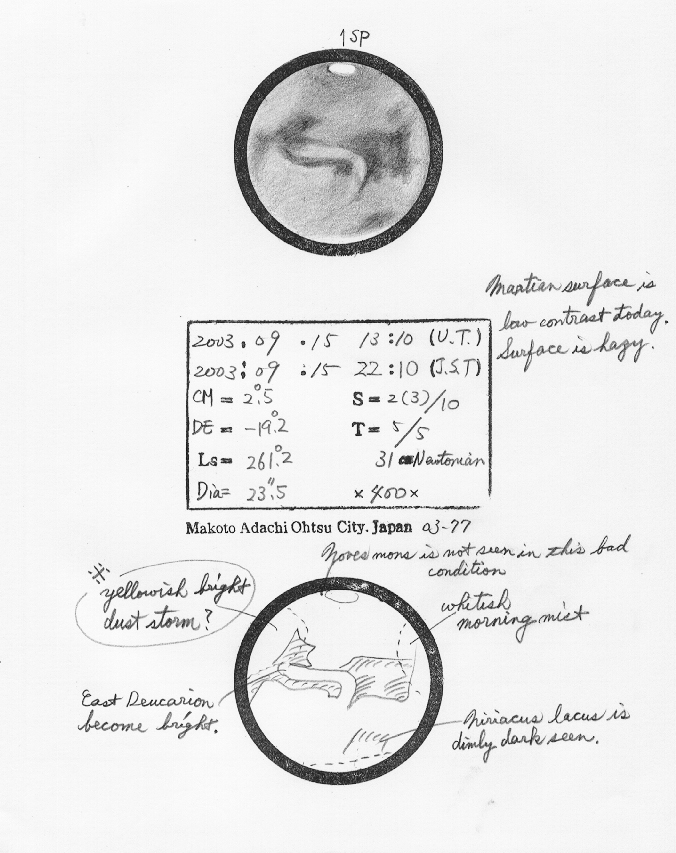 1SP
Martian surface is
low contrast today.
Surface is hazy.
2003.09.15 13:10 (U.T.)
2003:09:15 22:10 (J.S.T)
CM = 2°.5 S = 2(3)/10
DE = -19°.2 T = 5/5
Ls= 261°.2 31 cm Newtonian
Dia= 23".5 ×400×
Makoto Adachi Ohtsu City. Japan 03-77
Noves mons is not seen in this bad
condition
※
yellowish bright
dust storm?
whitish
morning mist
East Deucarion
become bright.
Niriacus lacus is
dimly dark seen.